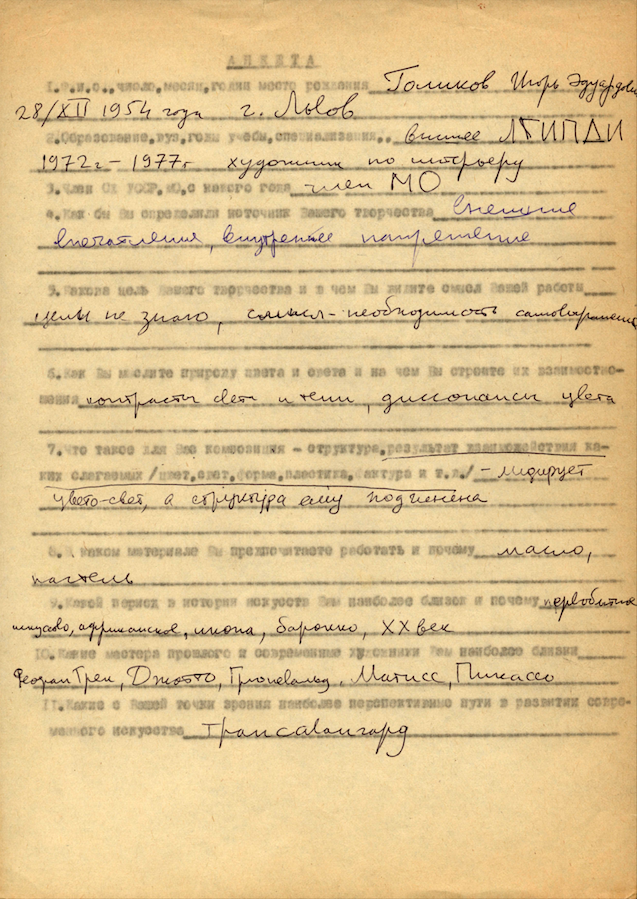 АНКЕТА
1.Ф.И.О.,число,месяц,год и место рождения Голиков Игорь Эдуардович
28/XII 1954 года г. Львов
2.Образование,вуз,годы учебы,специализация,. высшее ЛГИПДИ
1972г – 1977г художник по интерьеру
3.Член СХ УССР,МО,с какого года член МО
4.Как бы Вы определили источник Вашего творчества внешние
впечатления, внутреннее напряжение
5.Какова цель Вашего творчества и в чем Вы видите смысл Вашей работы
цели не знаю, смысл - необходимость самовыражения
6.Как Вы мыслите природу цвета и света и на чем Вы строите их взаимоотно-
шения контрасты света и тени, диссонансы цвета
7.Что такое для Вас композиция - структура,результат взаимодействия ка-
ких слагаемых /цвет,свет,форма,пластика,фактура и т.д./ - лидирует
цвето-свет, а структура ему подчинена
8.В каком материале Вы предпочитаете работать и почему масло,
пастель
9.Какой период в истории искусств Вам наиболее близок и почему первобытное
искусство, африканское, икона, барокко, XX век
10.Какие мастера прошлого и современные художники Вам наиболее близки
Феофан Грек, Джотто, Грюневальд, Матисс, Пикассо
11.Какие с Вашей точки зрения наиболее перспективные пути в развитии совре-
менного искусства трансавангард